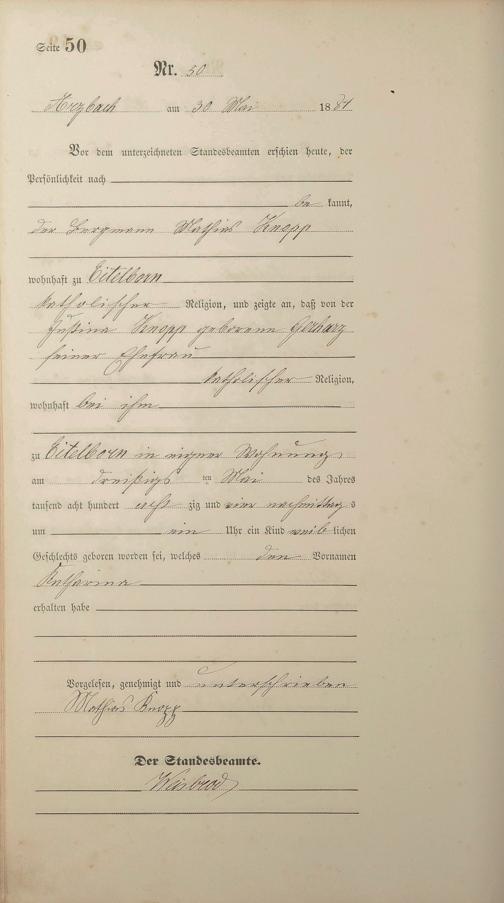 Seite 50
Nr. 50
Arzbach am 30 Mai 1881
Vor dem unterzeichneten Standesbeamten erschien heute, der
Persönlichkeit nach
be kannt,
der Bergmann Mathias Knopp
wohnhaft zu Eitelborn
katholischer Religion, und zeigte an, daß von der
Justina Knopp geborene Gerharz
seiner Ehefrau
katholischer Religion,
wohnhaft bei ihm
zu Eitelborn in eigner Wohnung
am dreißigs ten Mai des Jahres
tausend acht hundert acht zig und nachmittag s
um ein Uhr ein Kind weib lichen
Geschlechts geboren worden sei, welches den Vornamen
Katharina
erhalten habe
Vorgelesen, genehmigt und unterschrieben
Mathias Knopp
Der Standesbeamte.
Weisbrod